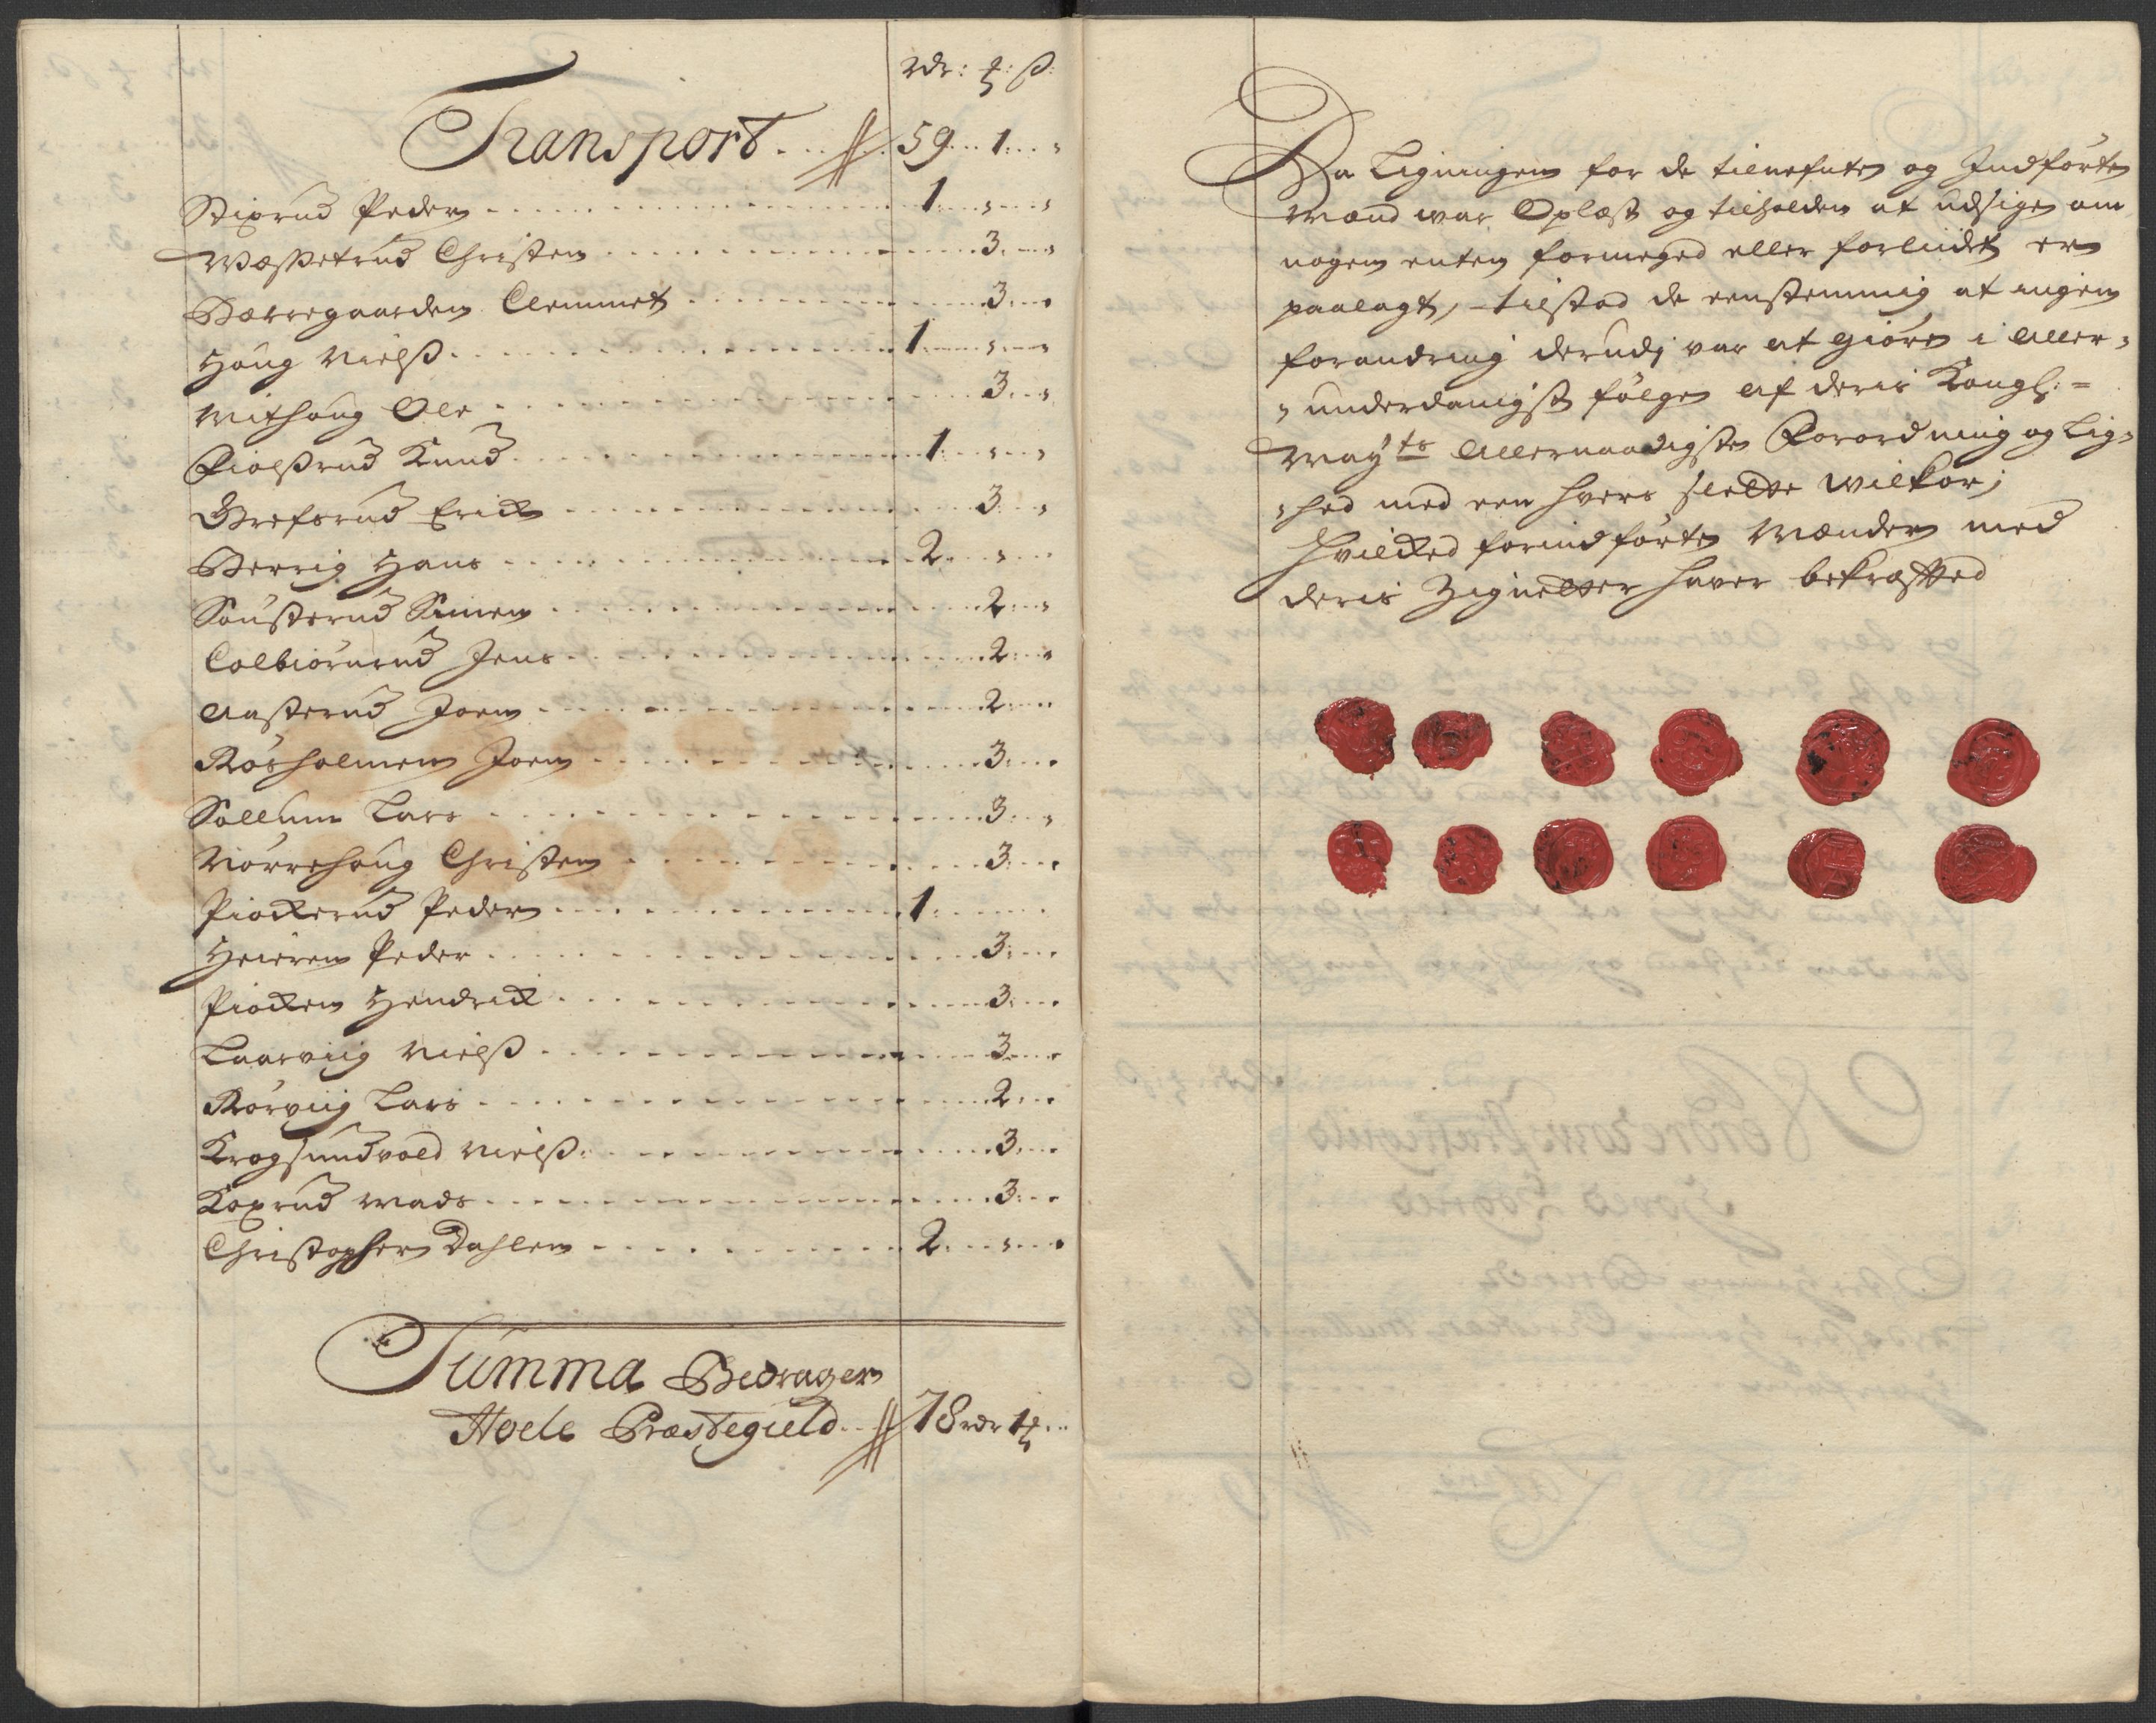 rdr: ort: ß:
Transport . . . 59 . . 1 . . "
Stixrud Peder . . . 1 . . " . . "
Wæstetrud Christen . . . 3 . . "
Bærregaarden Clemmet . . . 3 . .
Houg Nielß . . . 1 . . " . . "
Withoug Ole . . . 3 . . "
Fiolstrud Knud . . . 1 . . " . . "
Grefsrud Erick . . . 3 . . "
Berrig Hans . . . 2 . . " . .
Sousterud Simen . . . 2 . . "
Colbiørnrud Jens . . . 2 . . "
Aasterud Joen . . . 2 . .
Rørholmen Joen . . . 3 . .
Sollum Lars . . . 3 . . "
Nørrehoug Christen . . . 3 . .
Piockerud Peder . . . 1 . .
Heieren Peder . . . 3 . .
Piocken Hendrick . . . 3 . .
Laarviig Nielß . . . 3 . .
Rørviig Lars . . . 2 . .
Krogsundvold Nielß . . . 3 . .
Koxrud Mads . . . 3 . .
Christopher Dahlen . . . 2 . . " . .
Summa Bedrager
Hoele Præstegield . . 78 rdr 1 ort . .
Da Ligningen for de tilnefnte og Indførte
Mænd war Oplæst og tilholden at udsige om
nogen enten formeged eller forliidet er
paalagt, tilstod de eenstemmig at ingen
forandring derudj var at giøre i Aller-
underdanigst følge af deris Kongl:
Mayts Allernaadigste Forordning og Lig-
hed med een hvers slette Wilkor;
Hvilcked forindførte Mænder med
deris Zignetter haver bekræfted